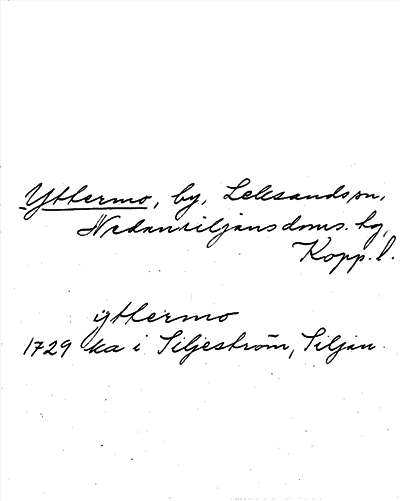 Yttermo, by, Leksands sn,
Nedansiljans doms. hg,
Kopp. l.
yttermo
1729 ka i Siljeström, Siljan